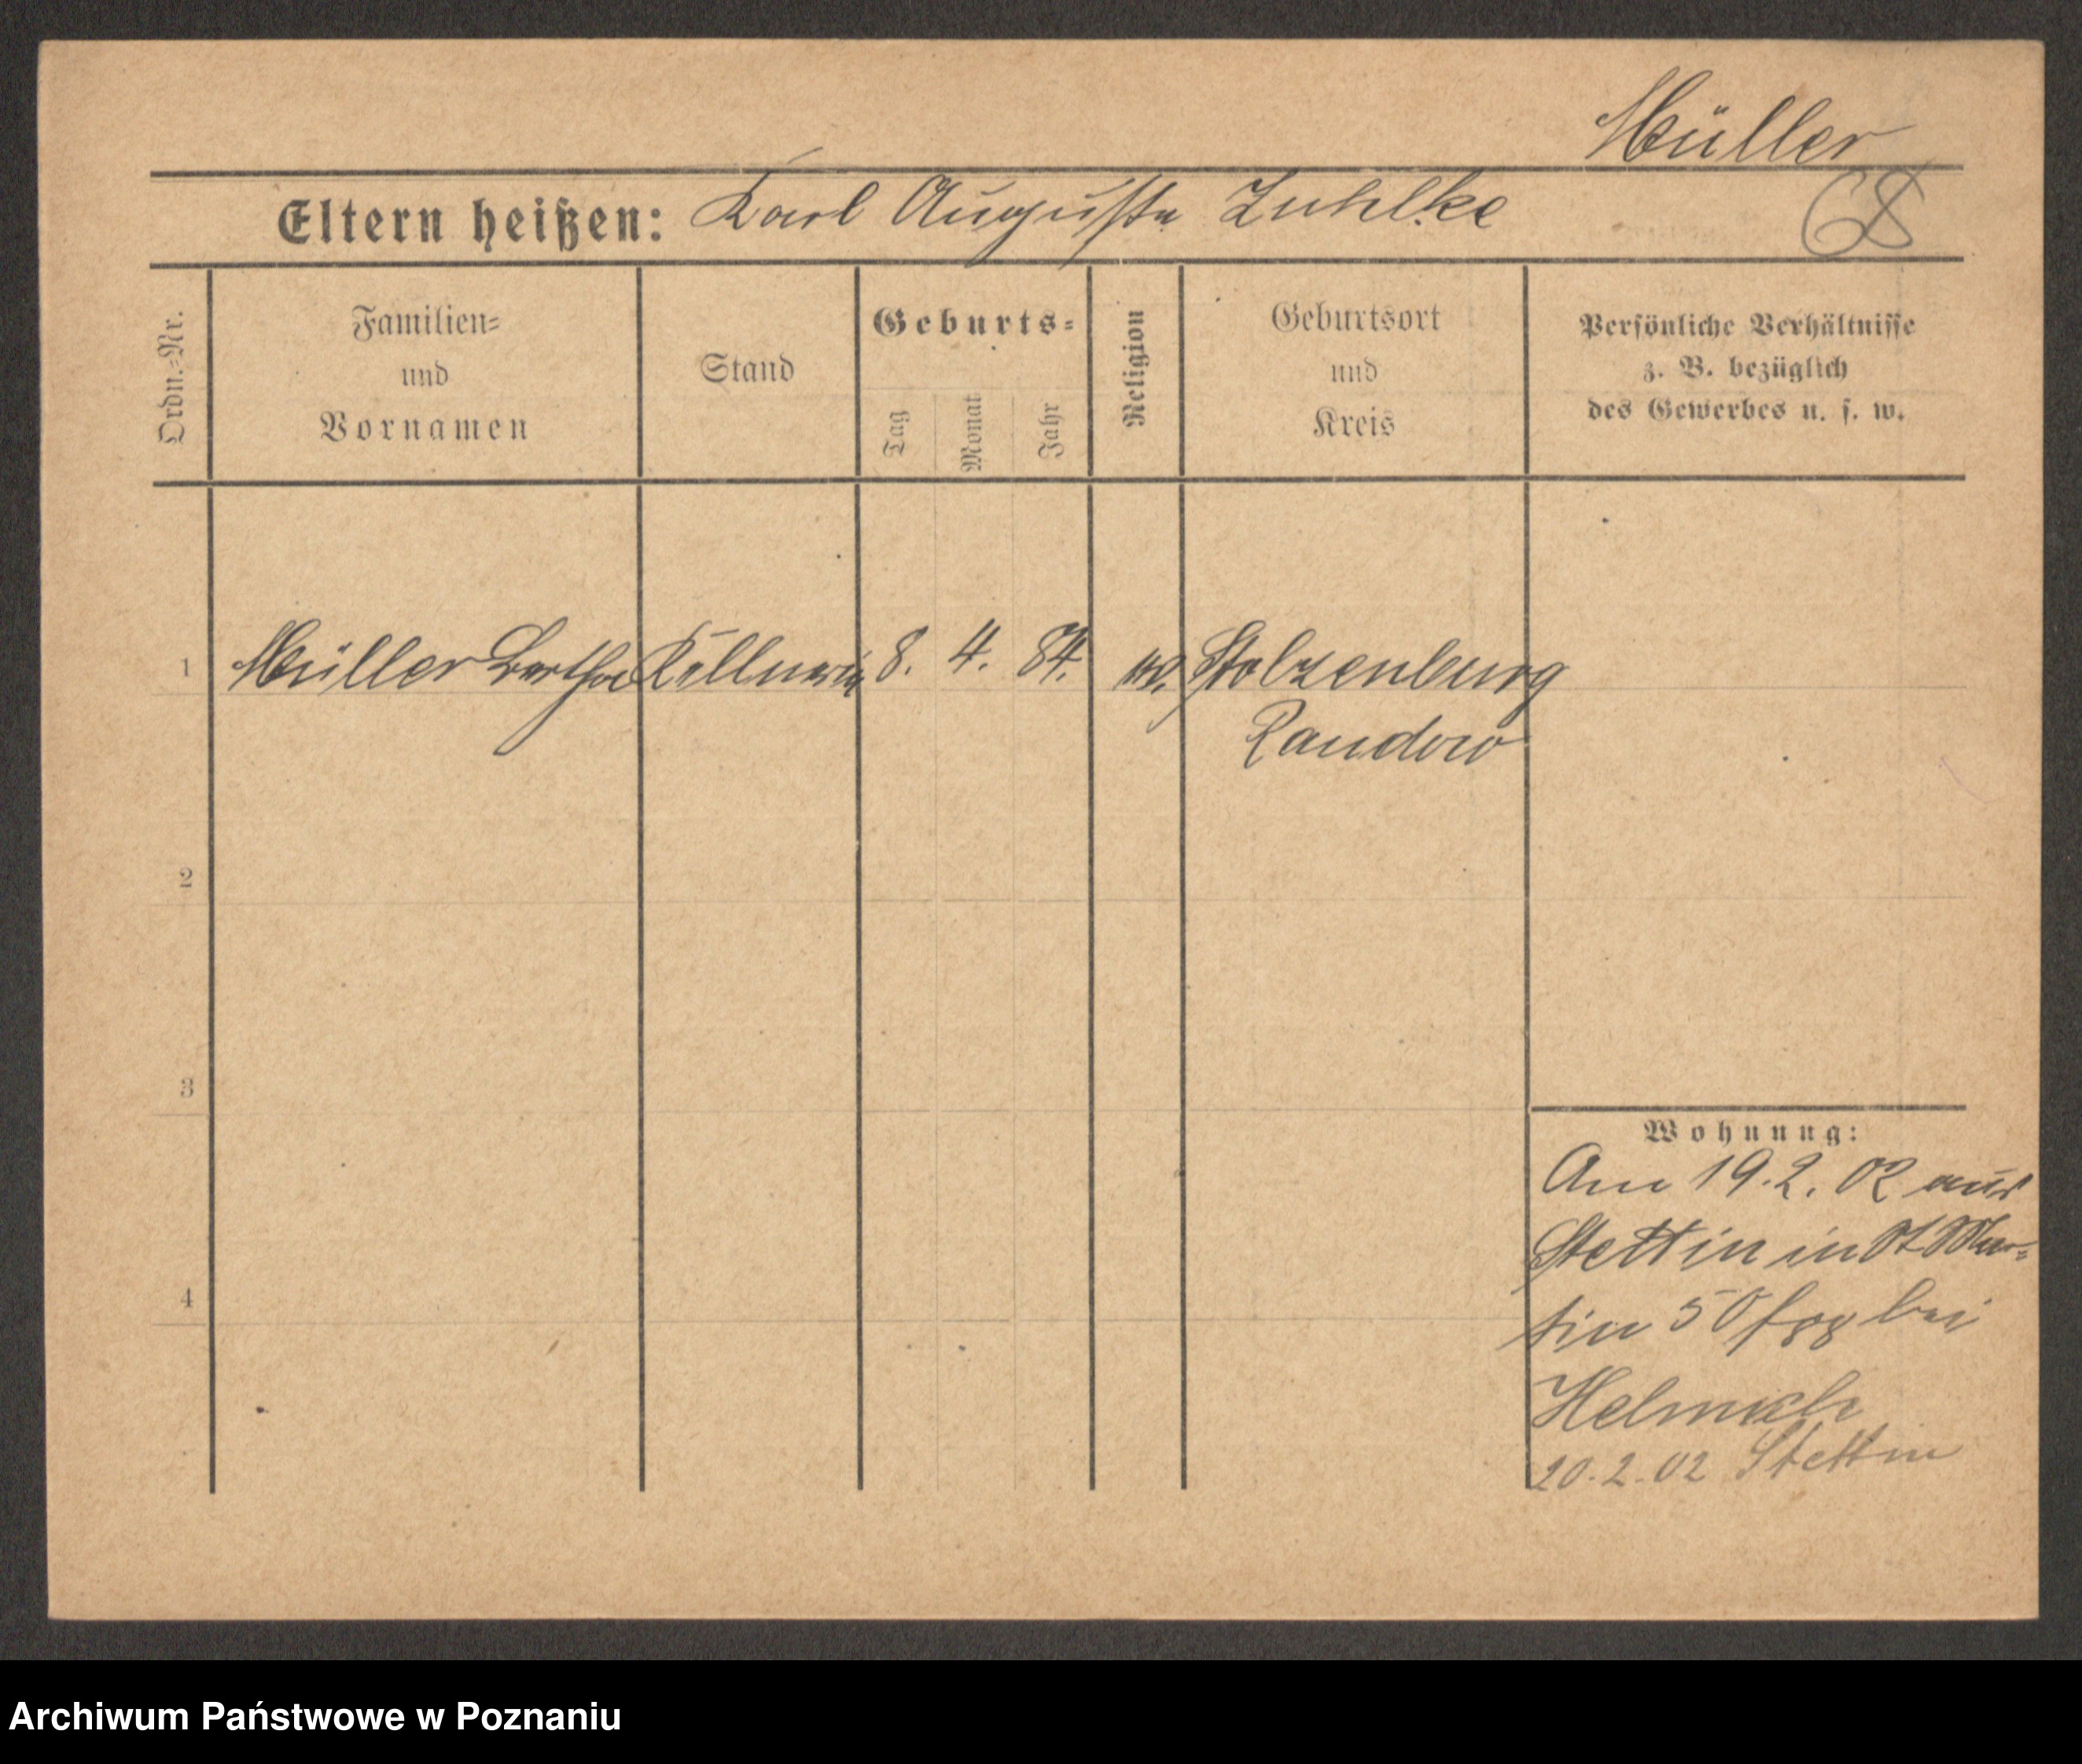 Müller
Eltern heißen: Karl Auguste Zuhlke
Ordn.-Nr.
Familien- und Vornamen
Stand
Geburts-
Tag
Monat
Jahr
Religion
Geburtsort und Kreis
Persönliche Verhältnisse
z. B. bezüglich
des Gewerbes u. s. w.
1 Müller Bertha Kellnerin 8. 4. 84. ev. Stolzenburg
Randow
2
3
4
Wohnung:
Am 19.2.02 aus
Stettin in St Mar-
tin 50 bei
Helmich
20.2.02 Stettin
Archiwum Państwowe w Poznaniu